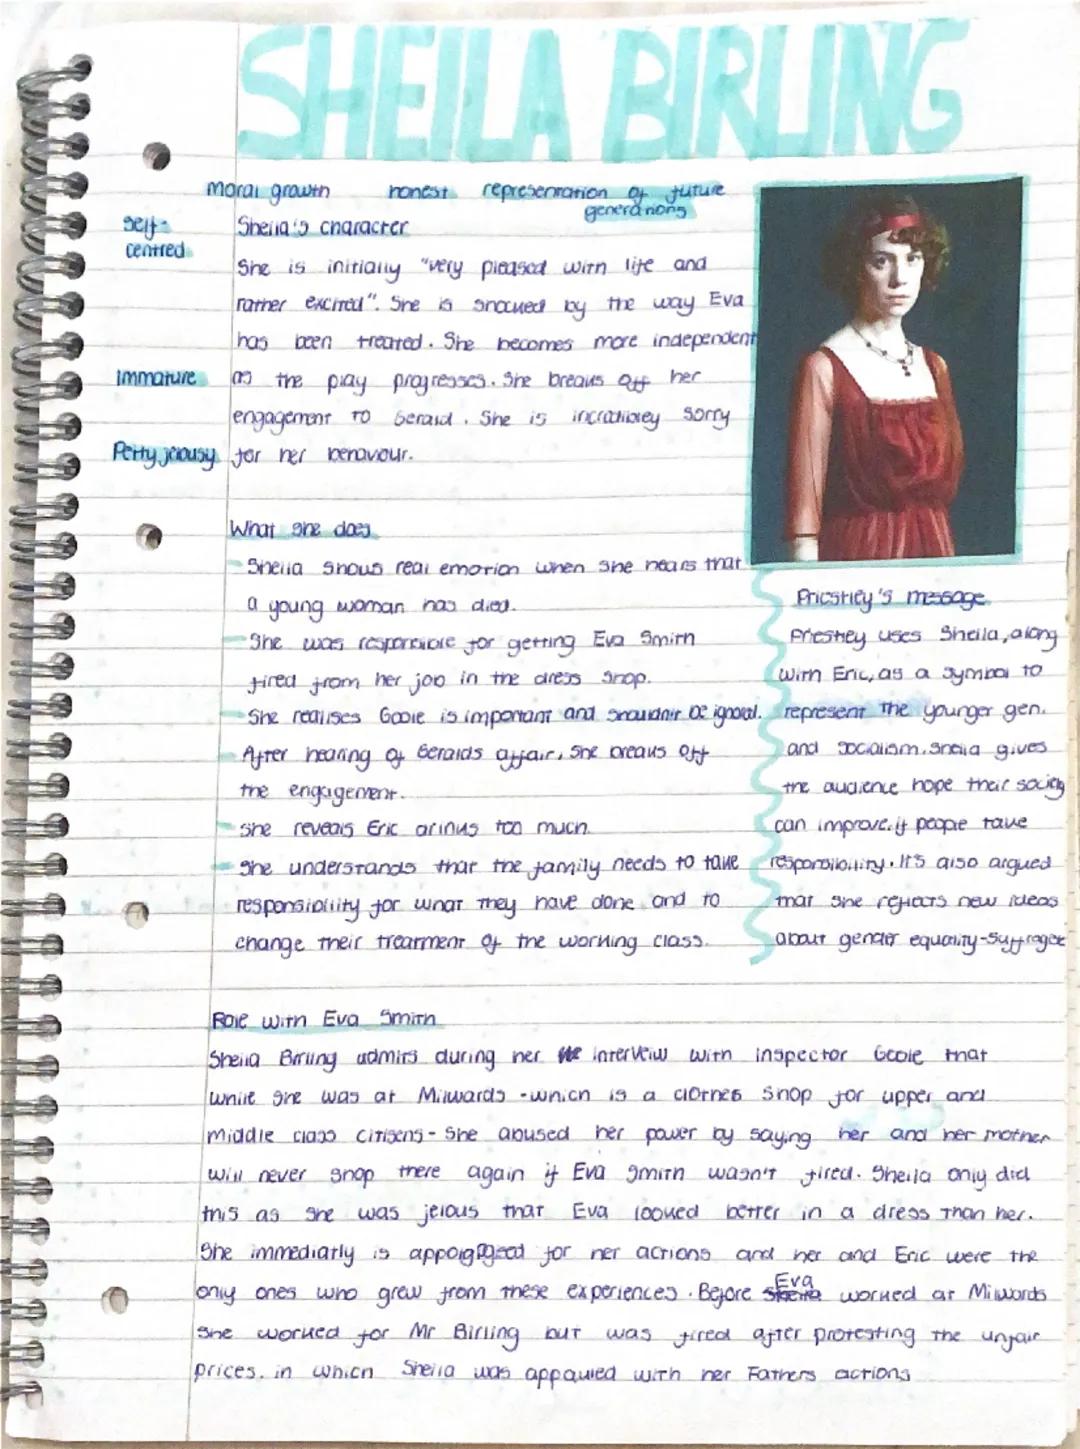 SHEILA BIRLING
moral growth honest representation of future generations
self-centred
Sheila's character
She is initially "very pleased with life and
rather excited". She is shocked by the way Eva
has been treated. She becomes more independent
Immature
as the play progresses. She breaks off her
engagement to Gerald. She is incredibley sorry
Petty jelousy
for her behavour.
What she does
- Sheila shows real emotion when she hears that
a young woman has died.
- She was responsible for getting Eva Smith
fired from her job in the dress shop.
- She realises Goole is important and shouldn't be ignored.
- After hearing of Geralds affair, she breaks off
the engagement.
- She reveals Eric drinks too much.
- She understands that the family needs to take
responsibility for what they have done and to
change their treatment of the working class.
Priestley's message
Priestley uses Sheila, along
with Eric, as a symbol to
represent the younger gen.
and socialism. Sheila gives
the audience hope their society
can improve, if people take
responsibility. It's also argued
that she reflects new ideas
about gender equality-Suffragete
Role with Eva Smith
Sheila Birling admits during her interveiw with inspector Goole that
while she was at Milwards -which is a clothes shop for upper and
middle class citisens- She abused her power by saying her and her mother
will never shop there again if Eva Smith wasn't fired. Sheila only did
this as she was jelous that Eva looked better in a dress than her.
She immediatly is appologgised for her actions and her and Eric were the
only ones who grew from these experiences. Before Eva worked at Milwards
she worked for Mr Birling but was fired after protesting the unfair
prices. in which Sheila was appauled with her Fathers actions